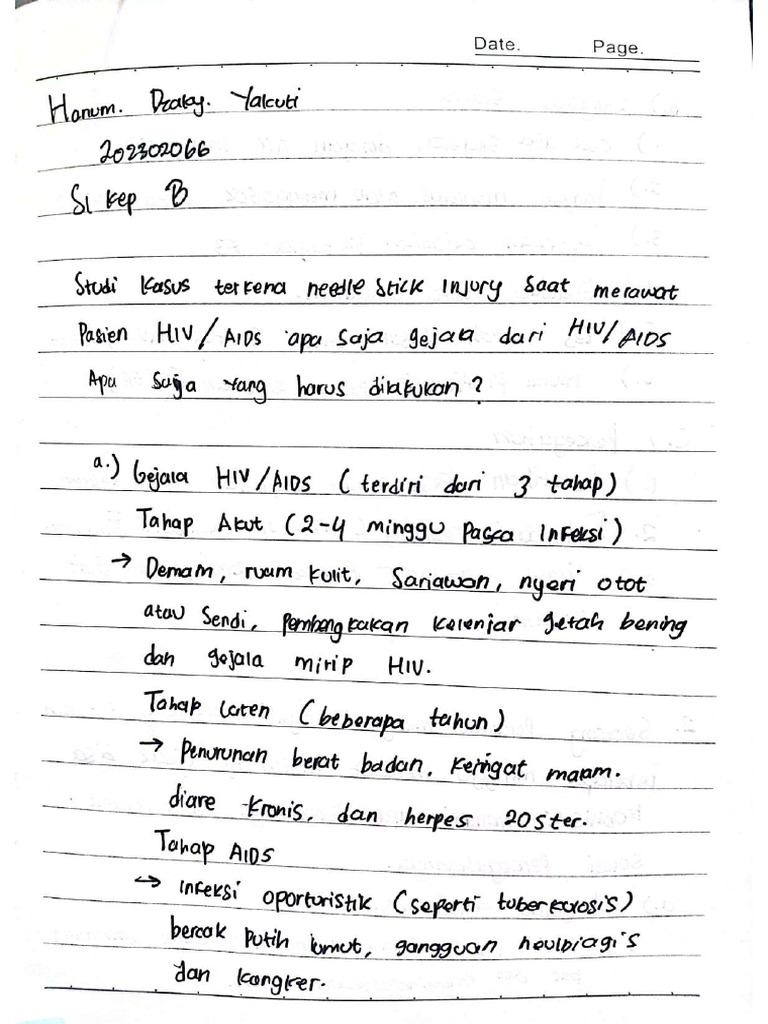 Date. Page.
Hanum. Dzaky. Yakuti
202302066
S1 Kep B
Studi Kasus terkena needle stick Injury Saat merawat
Pasien HIV/AIDS apa saja gejala dari HIV/AIDS
Apa saja yang harus dilakukan?
a.) Gejala HIV/AIDS (terdiri dari 3 tahap)
Tahap Akut (2-4 minggu pasca Infeksi)
→ Demam, ruam kulit, Sariawan, nyeri otot
atau Sendi, pembengkakan kelenjar getah bening
dan gejala mirip HIV.
Tahap Laten (beberapa tahun)
→ penurunan berat badan, keringat malam.
diare kronis, dan herpes 20ster.
Tahap AIDS
→ Infeksi oportunistik (seperti tuberkulosis)
bercak putih lumut, gangguan
dan kangker.